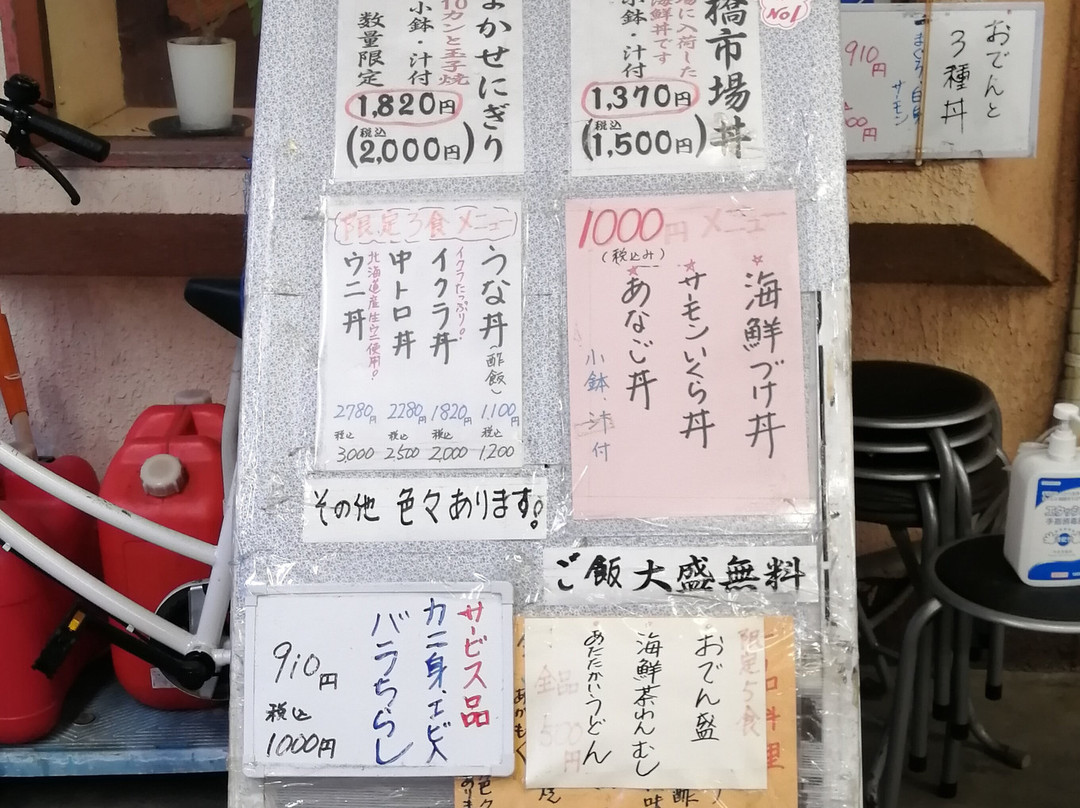 橋市場丼
場に入荷した
海鮮丼です
小鉢・汁付
1,370円
(税込1,500円)
No1
まかせにぎり
10カンと玉子焼
小鉢・汁付
数量限定
1,820円
(税込2,000円)
おでんと
3種丼
サーモン
910円
1000円メニュー
(税込み)
海鮮づけ丼
サーモンいくら丼
あなご丼
小鉢・汁付
限定3食メニュー
うな丼(酢飯)
1,100円
税込
1,200
イクラたっぷり!
イクラ丼
1820円
税込
2,000
中トロ丼
2280円
税込
2500
北海道産生ウニ使用!
ウニ丼
2780円
税込
3,000
その他 色々あります。
ご飯大盛無料
サービス品
カニ身・エビ入
バラちらし
910円
税込
1000円
限定5食
おでん盛
海鮮茶わんむし
あたたかいうどん
全品
500円
手指消毒